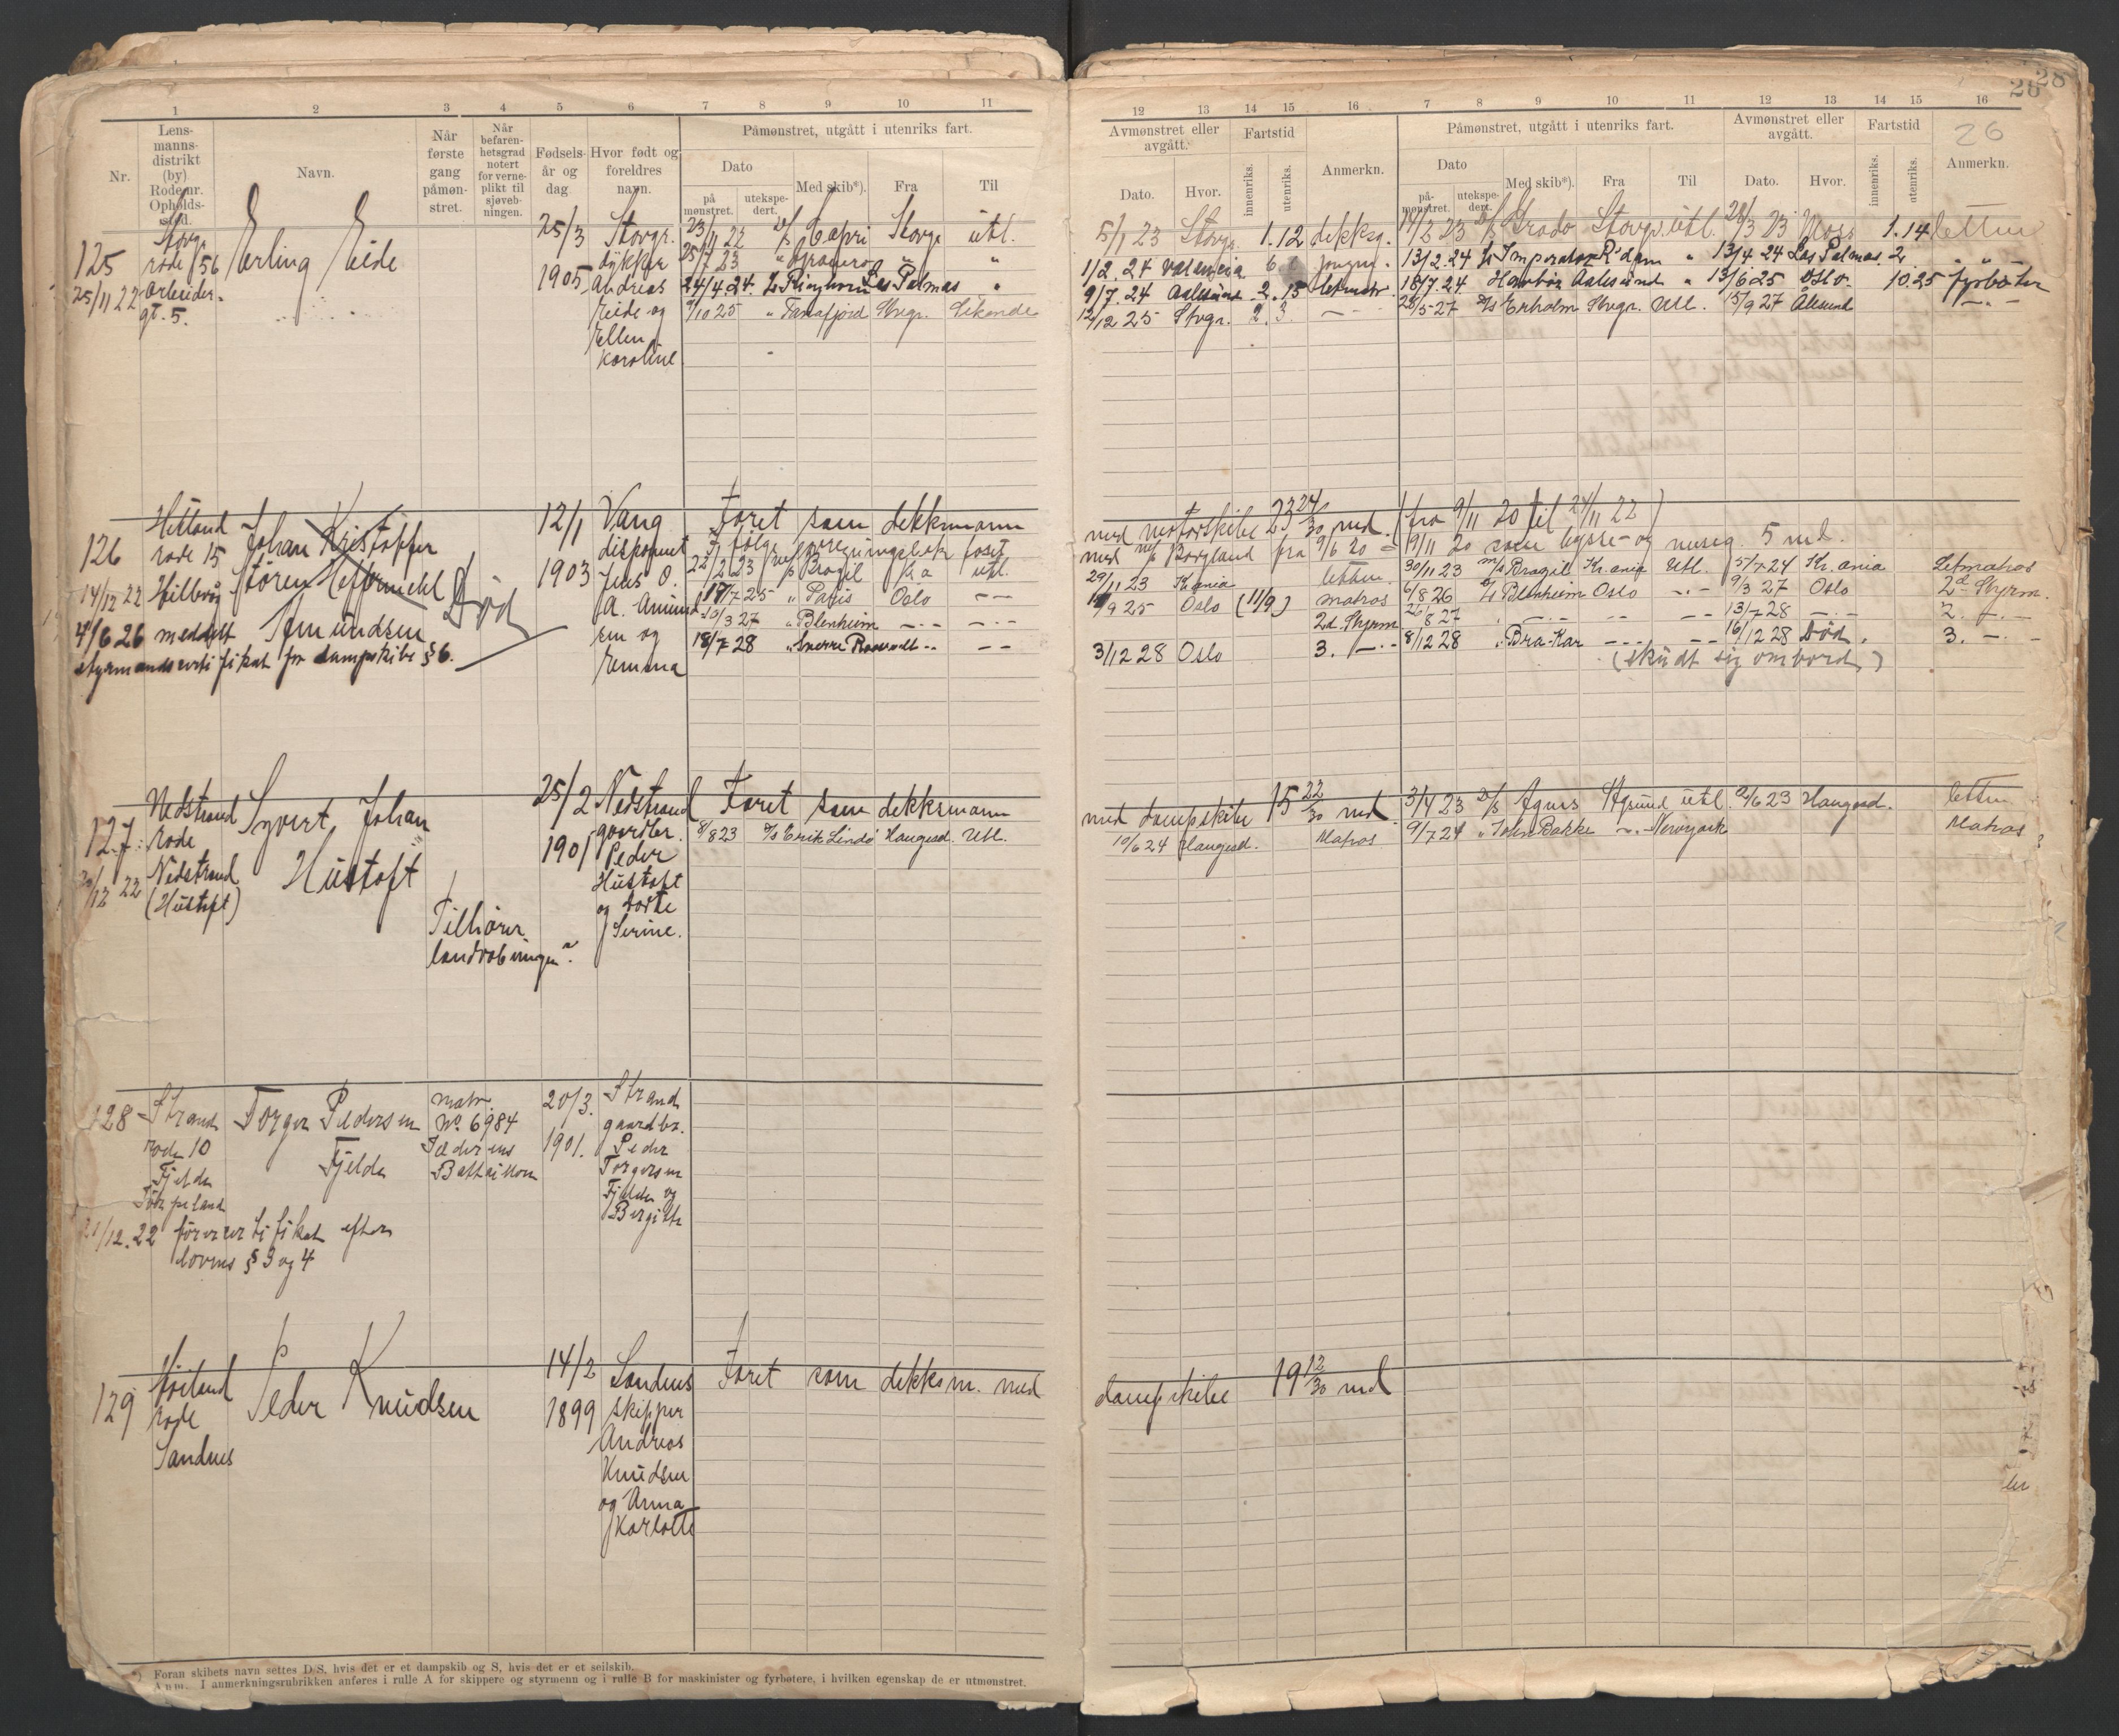 1 2 3 4 5 6 7 8 9 10 11
Nr.
Lens-
manns-
distrikt
(by)
Rode nr.
Opholds-
sted.
Navn.
Når
første
gang
påmøn-
stret.
Når
befaren-
hetsgrad
notert
for verne-
plikt til
sjøveb-
ningen.
Fødsels-
år og
dag
Hvor født og
foreldres
navn.
Påmønstret, utgått i utenriks fart.
Dato
på
mønstret.
utekspe-
dert.
Med skib*).
Fra
Til
125
25/11 22
Stavg.
rode 156
Arbeider-
gt. 5.
Erling Eide
25/3
1905
Stavgr.
dykker
Andreas
Eide og
Ellen
Karoline
23/11 22 D/S Capri Stavgr utl.
25/7 23 " "
24/4 24. Las Palmas "
9/10 25 " Fanafjord Stvgr.
126
14/12 22
Hetland
rode 15
Hillevåg
Johan Kristoffer
Støren
Amundsen
Død
4/6 26 meddelt
styrmandscertifikat for dampskibe § 6.
12/1
1903
Vang
disponent
Jens O.
A. Amund-
sen og
Emma
Faret som dekksmann
I følge foregningsbok faset
22/2 23 M/S Brazil Kr a utl.
17/7 25 " Paris Oslo — —
10/3 27 " Blenheim —·— —·—
18/7 28 " — —
127
22/12 22
Nedstrand
rode
Nedstrand
(Hustoft)
Syvert Johan
Hustoft
Tilhører
landvæbningen?
25/2
1901
Nedstrand
gaardbr.
Peder
Hustoft
og Dorte
Serine.
Faret som dekksmann
8/8 23 D/S Erik Lindø Haugesd. Utl.
128
Strand
rode 10
Fjelde
Jørpeland
Torger Pedersen
Fjelde
matr.
No. 6984
Battaillon
20/3.
1901.
Strand
gaardbr.
Peder
Torgersen
Fjelde og
Bergitte
21/12. 22 førercertifikat efter
lovens § 3 og 4
129
Høiland
rode
Sandnes
Peder Knudsen
14/2
1899
Sandnes
skipper
Andreas
Knudsen
og Anna
Karlotte
Faret som dekksm. med
*) Foran skibets navn settes D/S, hvis det er et dampskib og S, hvis det er et seilskib.
Anm. I anmerkningsrubrikken anføres i rulle A for skippere og styrmenn og i rulle B for maskinister og fyrbøtere, i hvilken egenskap de er utmønstret.
28
28
26
12 13 14 15 16 7 8 9 10 11 12 13 14 15 16
Avmønstret eller
avgått.
Dato.
Hvor.
Fartstid
innenriks.
utenriks.
Anmerkn.
Påmønstret, utgått i utenriks fart.
Dato
på-
mønstret.
utekspe-
dert.
Med skib*).
Fra
Til
Avmønstret eller
avgått.
Dato.
Hvor.
Fartstid
innenriks.
utenriks.
Anmerkn.
5/1 23 Stavgr. 1.12 dekksg. 14/2 23 D/S Grado Stavgr. utl. 28/3 23 Moss 1.14 lettm
1/2. 24 Valencia 6 jungm. 13/2. 24 Imperator R'dam " 13/4 24 Las Palmas. 2 " "
9/7. 24 Aalesund 2.15 letmatr. 18/7. 24 Aalesund " 13/6 25 Oslo. 10.25 fyrbøter
12/12 25 Stvgr. 2.3. — 28/5-27 D/S Stvgr. Utl. 15/9 27 Ålesund —"—
med motorskibe 23 24/30 md. (fra 9/11 20 til 24/11 22)
med M/S Borgland fra 9/6 20 – 19/11 20 som bysse- og messeg. 5 md.
29/11 23 Krania lettm. 30/11 23 M/S Brazil Kr.ania Utl. 5/7 24 Kr.ania Letmatros
9 25 Oslo (11/9) matros 6/8 26 Blenheim Oslo —.— 9/3 27 Oslo 2d Styrm.
2d. Styrm 26/8 27 " —.— — —— 13/7-28 —.— 2. —.—
3/12 28 Oslo 3. —.— 8/12 28 " Bra-Kar —— —— 16/12 28 Død. 3. —.—
(skudt sig ombord)
med dampskibe 15 22/30 md 3/4 23 D/S Agnes utl. 9/6 23 Haugesd. lettm
10/6 24 Haugesd. Matros 9/7 24 " John Bakke —"— Newyork Matros
dampskibe 19 12/30 md